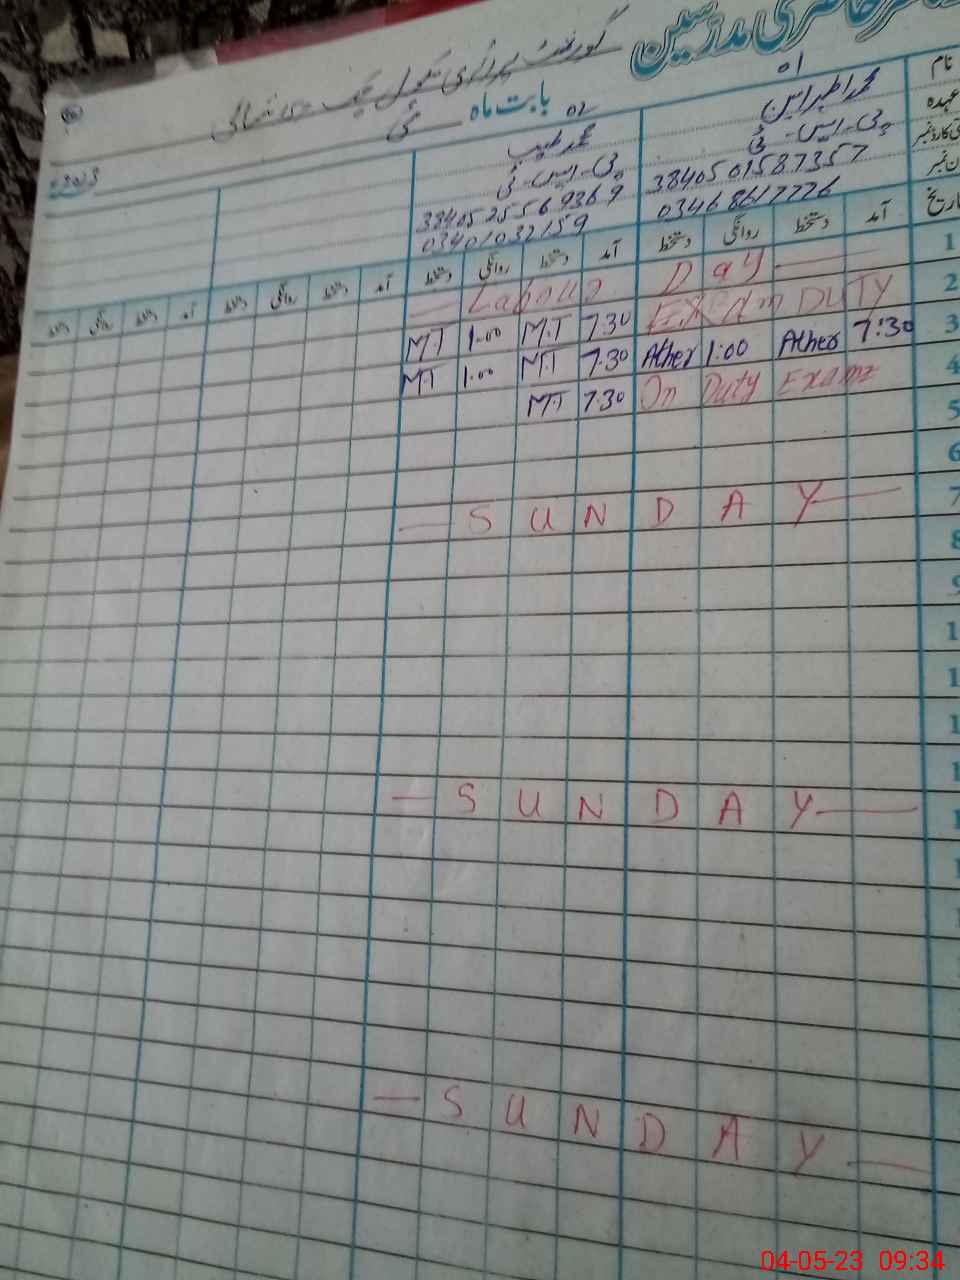 حاضری مدرسین
گورنمنٹ پرائمری سکول چک شمالی
بابت ماہ مئی
2023
نام
01
محمد اطہر امین
02
محمد طیب
عہدہ
پی-ایس-ٹی
پی-ایس-ٹی
3840501587357
3840525569369
03468617726
03401032159
تاریخ
آمد دستخط روانگی دستخط آمد دستخط روانگی دستخط آمد دستخط روانگی دستخط آمد دستخط روانگی دستخط
1
Labour Day
2
EXAM DUTY
7:30 M.T 1:00 M.T
3
7:30 Ather 1:00 Ather
7:30 M.T 1:00 M.T
4
On Duty Exams
7:30 M.T
5
6
7
— S U N D A Y —
8
9
— S U N D A Y —
— S U N D A Y —
04-05-23 09:34